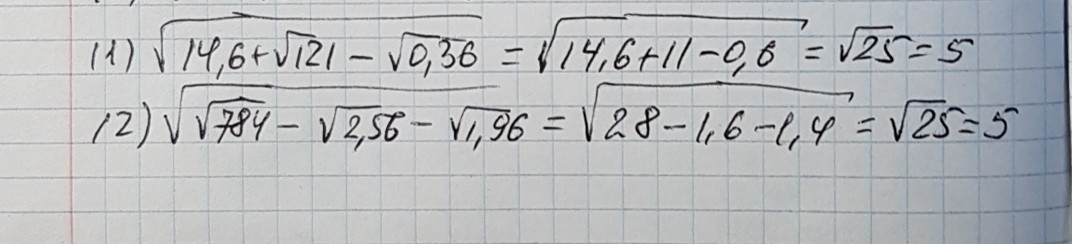 11) √(14,6+√121 - √0,36) = √(14,6+11-0,6) = √25 = 5
12) √(√784 - √2,56 - √1,96) = √(28-1,6-1,4) = √25 = 5